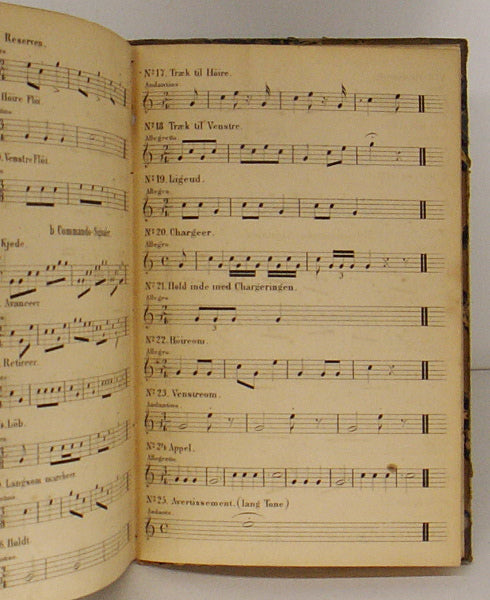 Reserven.
Höire Flöi.
Venstre Flöi.
b Commando-Signaler
Kjede.
Avanceer.
Retireer.
Löb.
Langsom marcheer.
Holdt.
No 17. Træk til Höire.
Andantino.
No 18 Træk til Venstre.
Allegretto.
No 19. Ligeud.
Allegro.
No 20. Chargeer.
Allegro.
No 21. Hold inde med Chargeringen.
Allegro
3
No 22. Höireom.
Allegro
No 23. Venstreom.
Andantino.
No 24 Appel.
Allegretto.
No 25. Avertissement. (lang Tone)
Andante